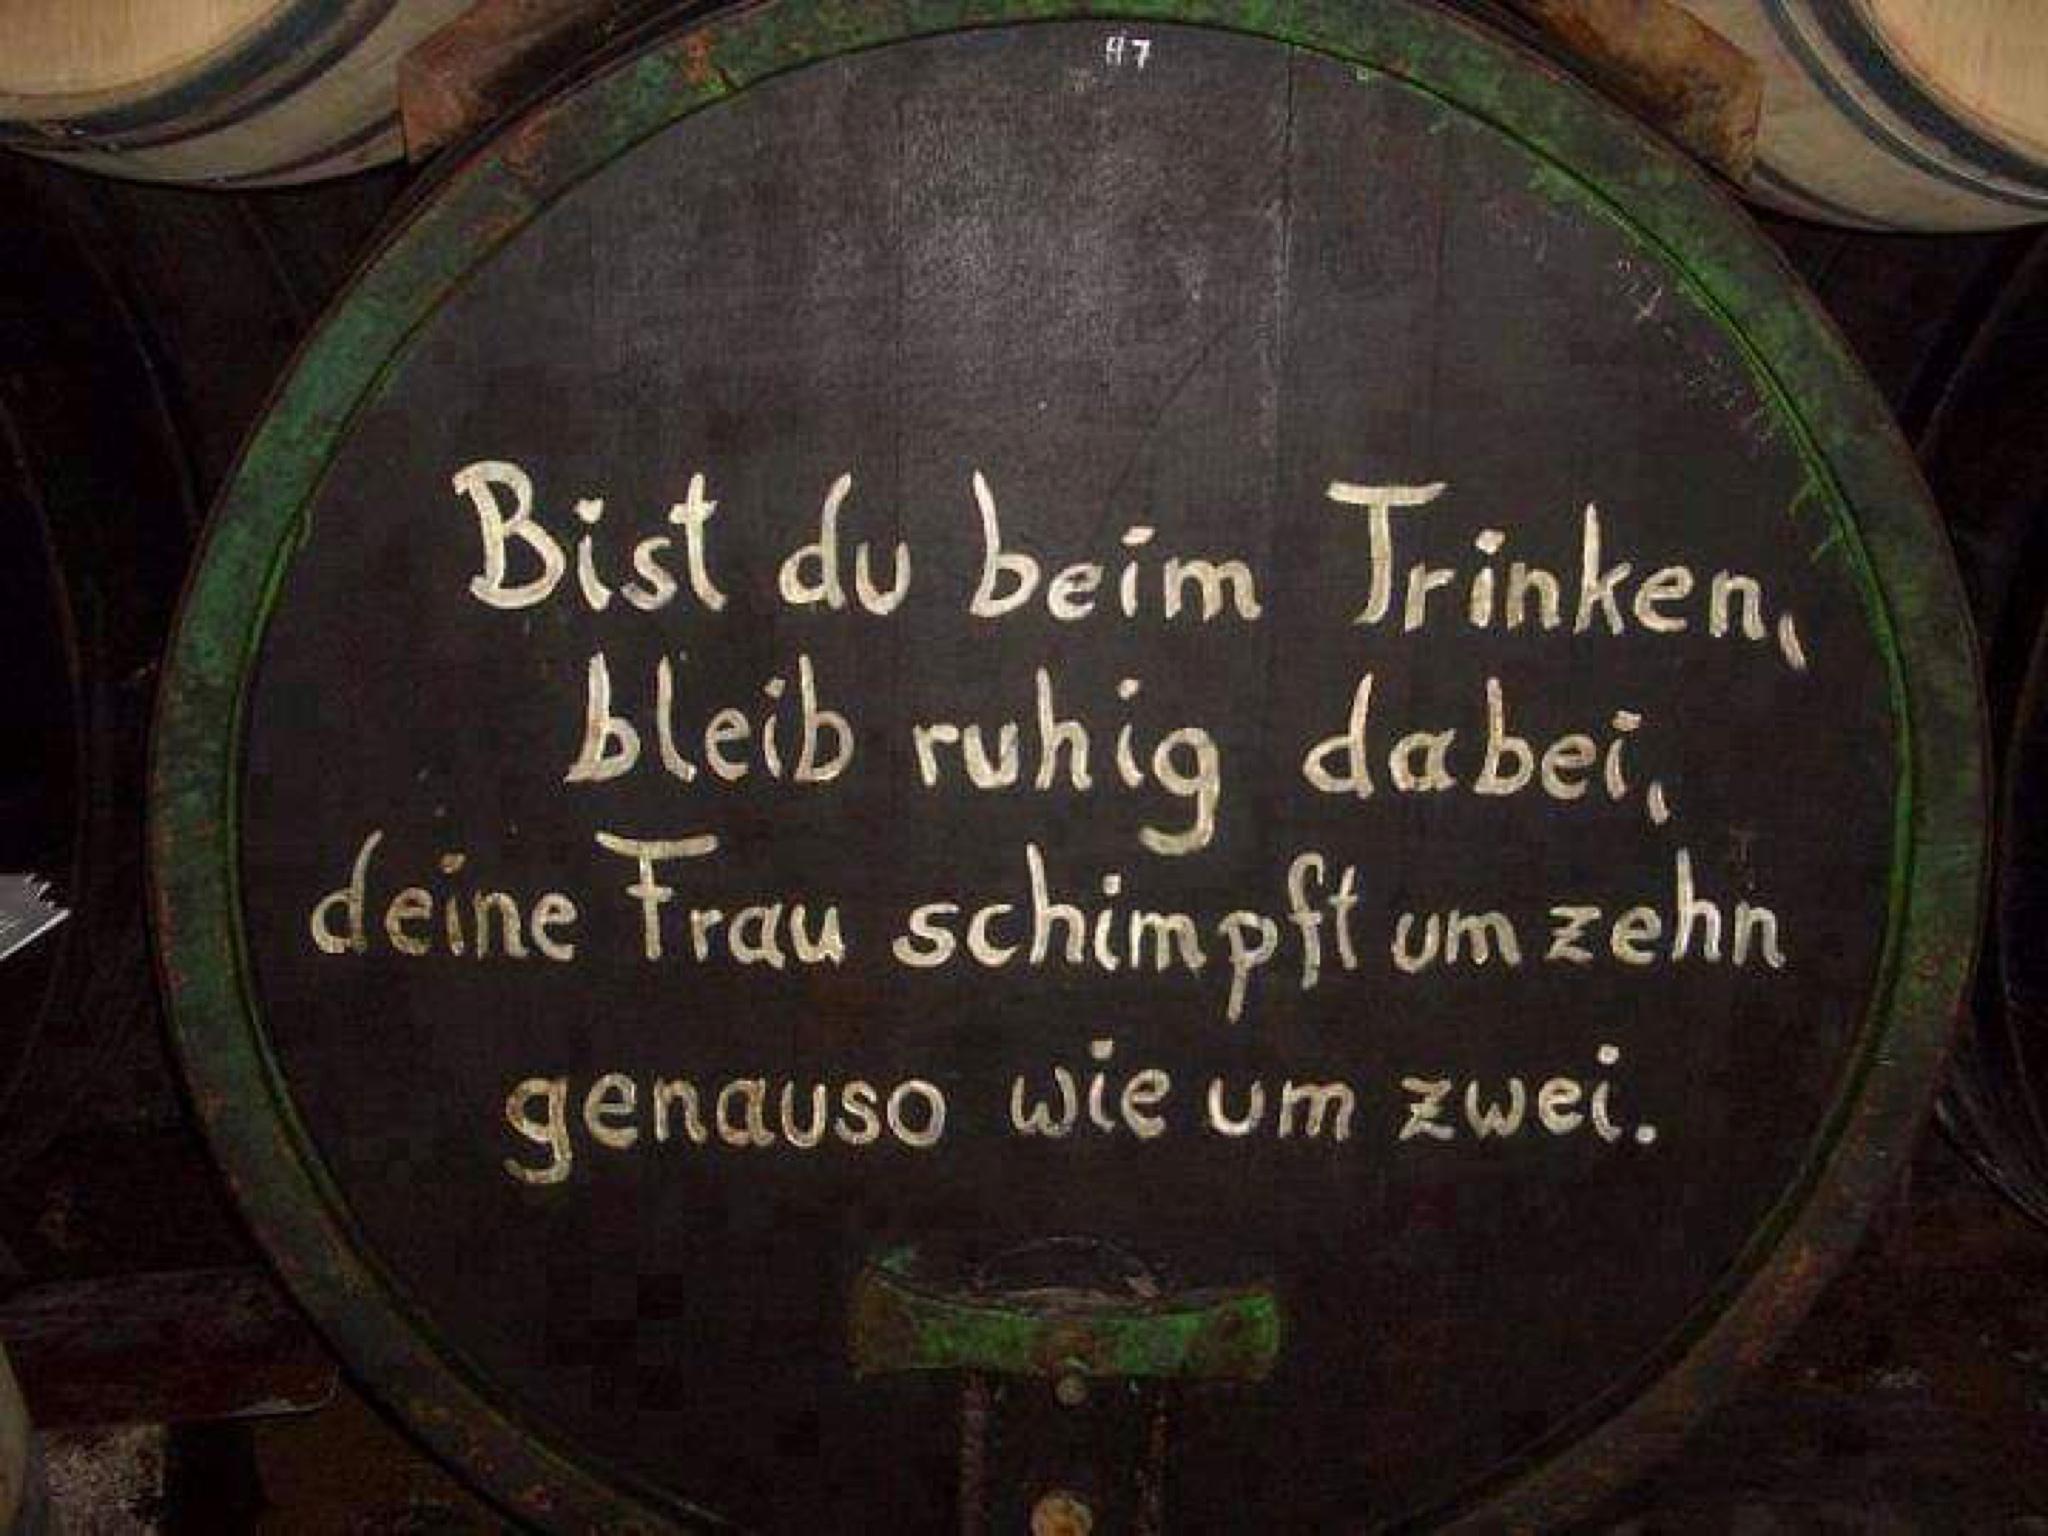 Bist du beim Trinken,
bleib ruhig dabei,
deine Frau schimpft um zehn
genauso wie um zwei.